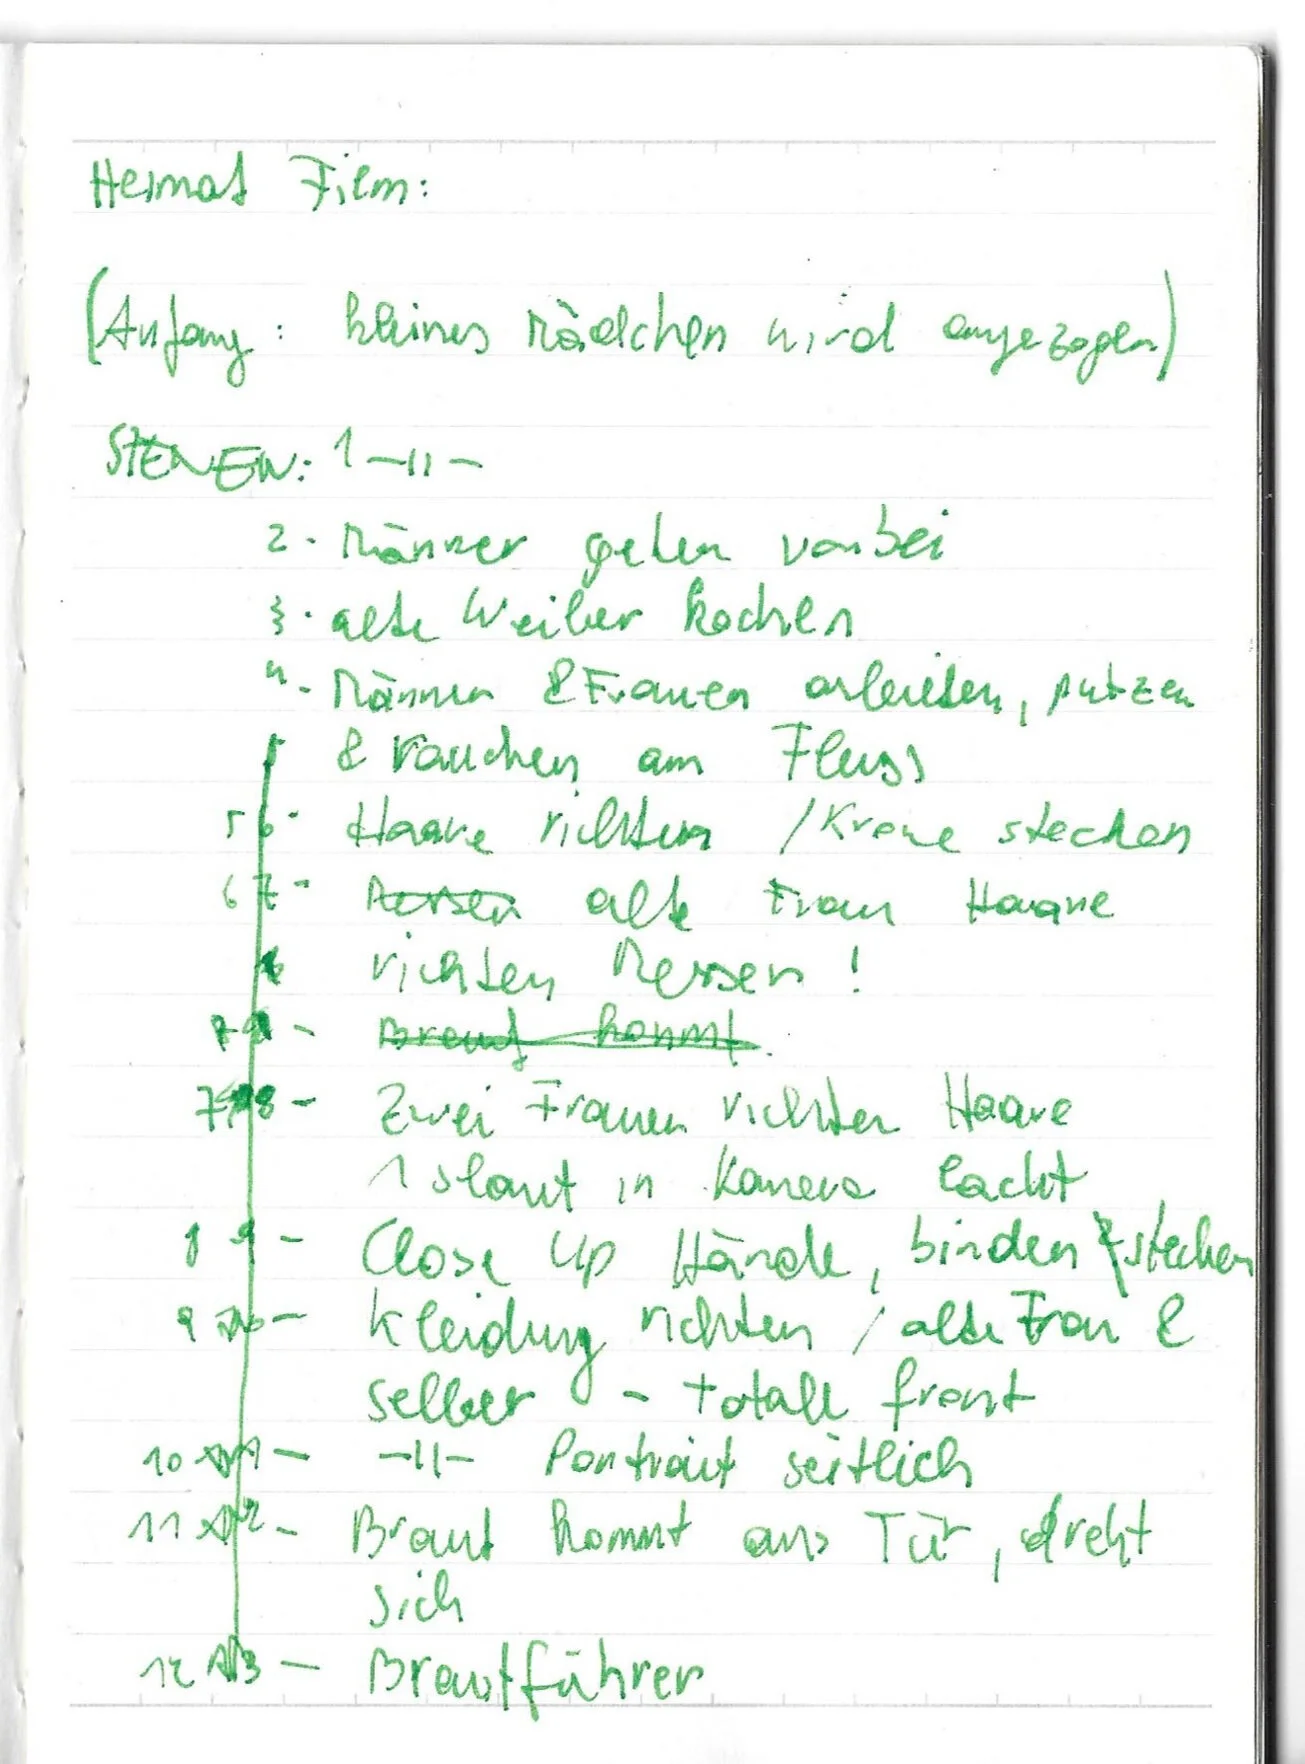 Heimat Film:
(Anfang: kleines Mädchen wird angezogen)
SZENEN: 1 –11–
2. Männer gehen vorbei
3. alte Weiber kochen
4. Männer & Frauen arbeiten, putzen
& rauchen am Fluss
5 6. Haare richten / Krone stecken
6 7 - Messer alte Frau Haare
richten Messer!
- Braut kommt
7 8 - Zwei Frauen richten Haare
1 staut in Kamera lacht
8 9 - Close Up Hände, binden & stecken
9 10 - Kleidung richten / alte Frau &
selber - totale front
10 11 - –11– Portrait seitlich
11 12 - Braut kommt aus Tür, dreht
sich
12 13 - Brautführer